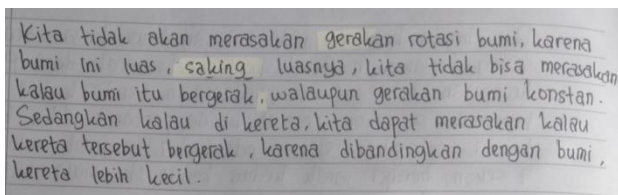 Kita tidak akan merasakan gerakan rotasi bumi, karena
bumi ini luas, saking luasnya, kita tidak bisa merasakan
kalau bumi itu bergerak, walaupun gerakan bumi konstan.
Sedangkan kalau di kereta, kita dapat merasakan kalau
kereta tersebut bergerak, karena dibandingkan dengan bumi,
kereta lebih kecil.